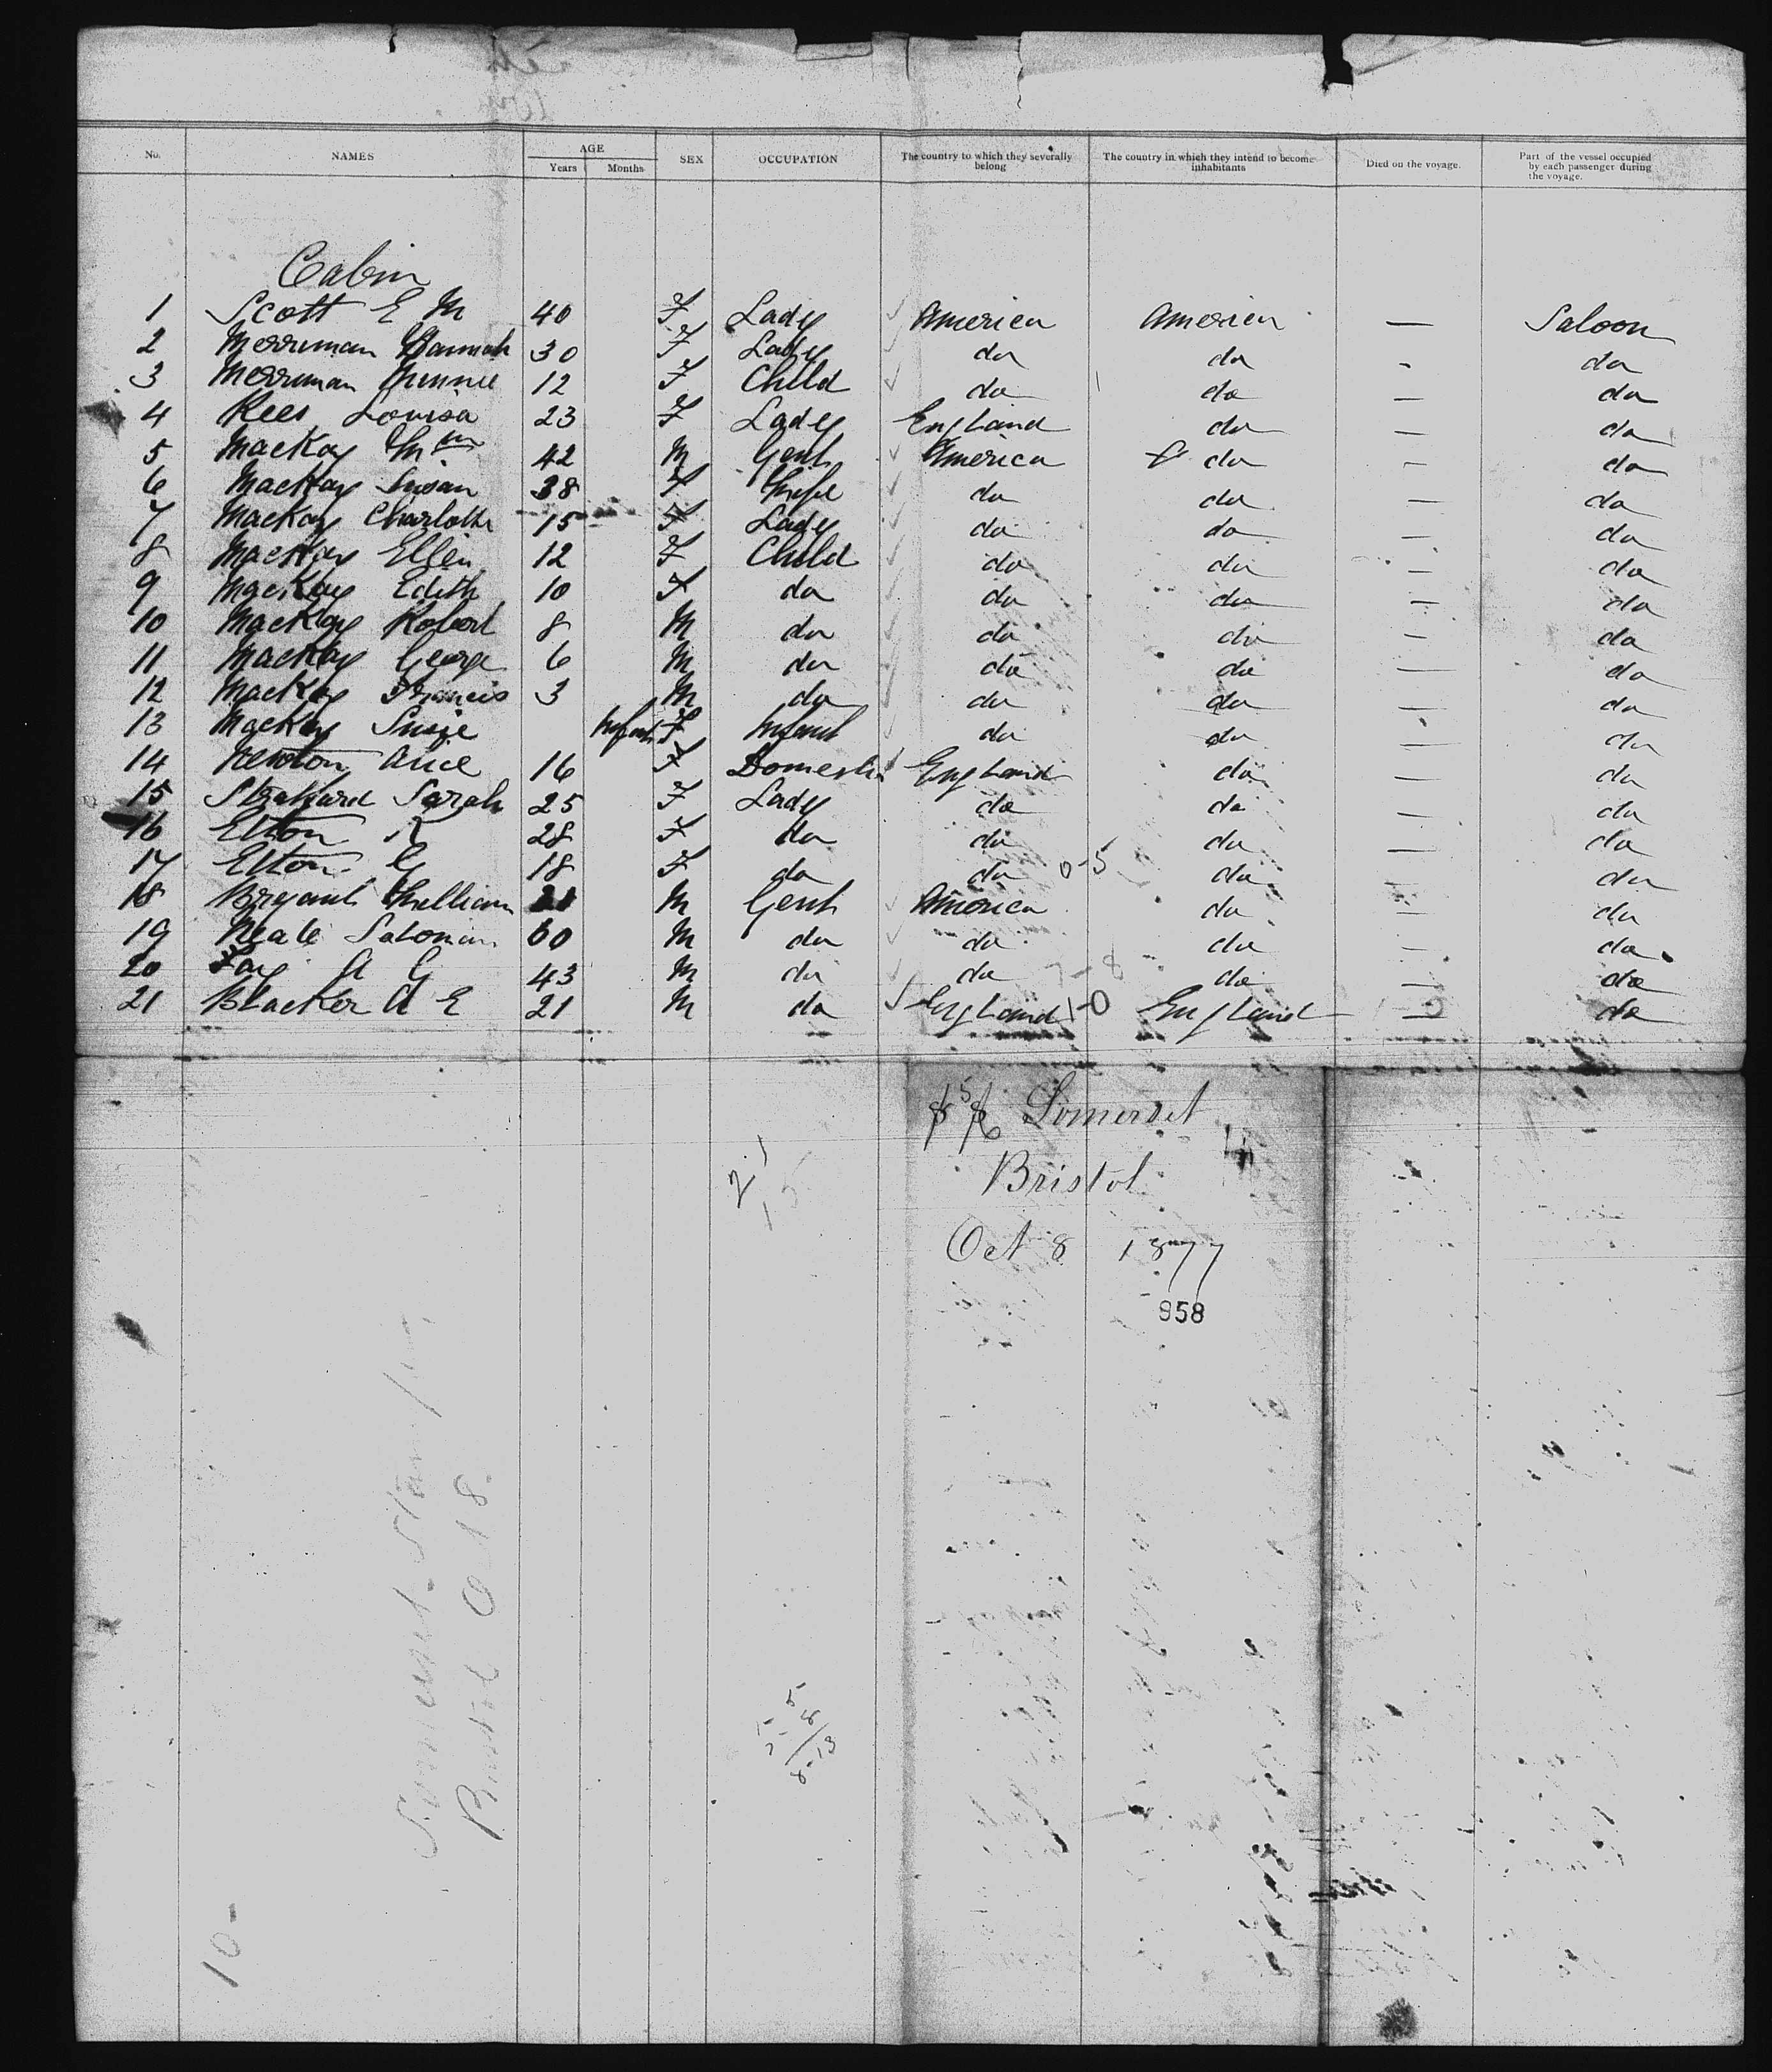 No. NAMES AGE Years Months SEX OCCUPATION The country to which they severally belong The country in which they intend to become inhabitants Died on the voyage. Part of the vessel occupied by each passenger during the voyage.
Cabin
1 Scott E M 40 F Lady America America — Saloon
2 Merriman Hannah 30 F Lady do do - do
3 Merriman Minnie 12 F Child do do — do
4 Rees Louisa 23 F Lady England do — do
5 MacKay Wm 42 M Gent America do — do
6 MacKay Susan 38 F Wife do do — do
7 MacKay Charlotte 15 F Lady do do — do
8 MacKay Ellen 12 F Child do do — do
9 MacKay Edith 10 F do do do — do
10 MacKay Robert 8 M do do do — do
11 MacKay George 6 M do do do — do
12 MacKay Francis 3 M do do do — do
13 MacKay Susie Infant F Infant do do — do
14 Newton Alice 16 F Domestic England do — do
15 Sarah 25 F Lady do do — do
16 Elton 28 F do do do — do
17 Elton G 18 F do do 0-5 do — do
18 Bryant William 21 M Gent America do — do
19 Neale Soloman 60 M do do do — do
20 Fay A G 43 M do do 7-8 do — do
21 Blacker A E 21 M do England 1-0 England — do
SS Somerset
Bristol
Oct 8 1877
958
21
15
Somerset
Bristol Oct 8.
10-